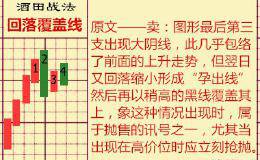 酒田战法
回落覆盖线
1
2
3
4
原文——卖：图形最后第三
支出现大阴线，此几乎包络
了前面的上升走势，但翌日
又回落缩小形成“孕出线”
然后再以稍高的黑线覆盖其
上，象这种情况出现时，属
于抛售的讯号之一，尤其当
出现在高价位时应立刻抢抛。